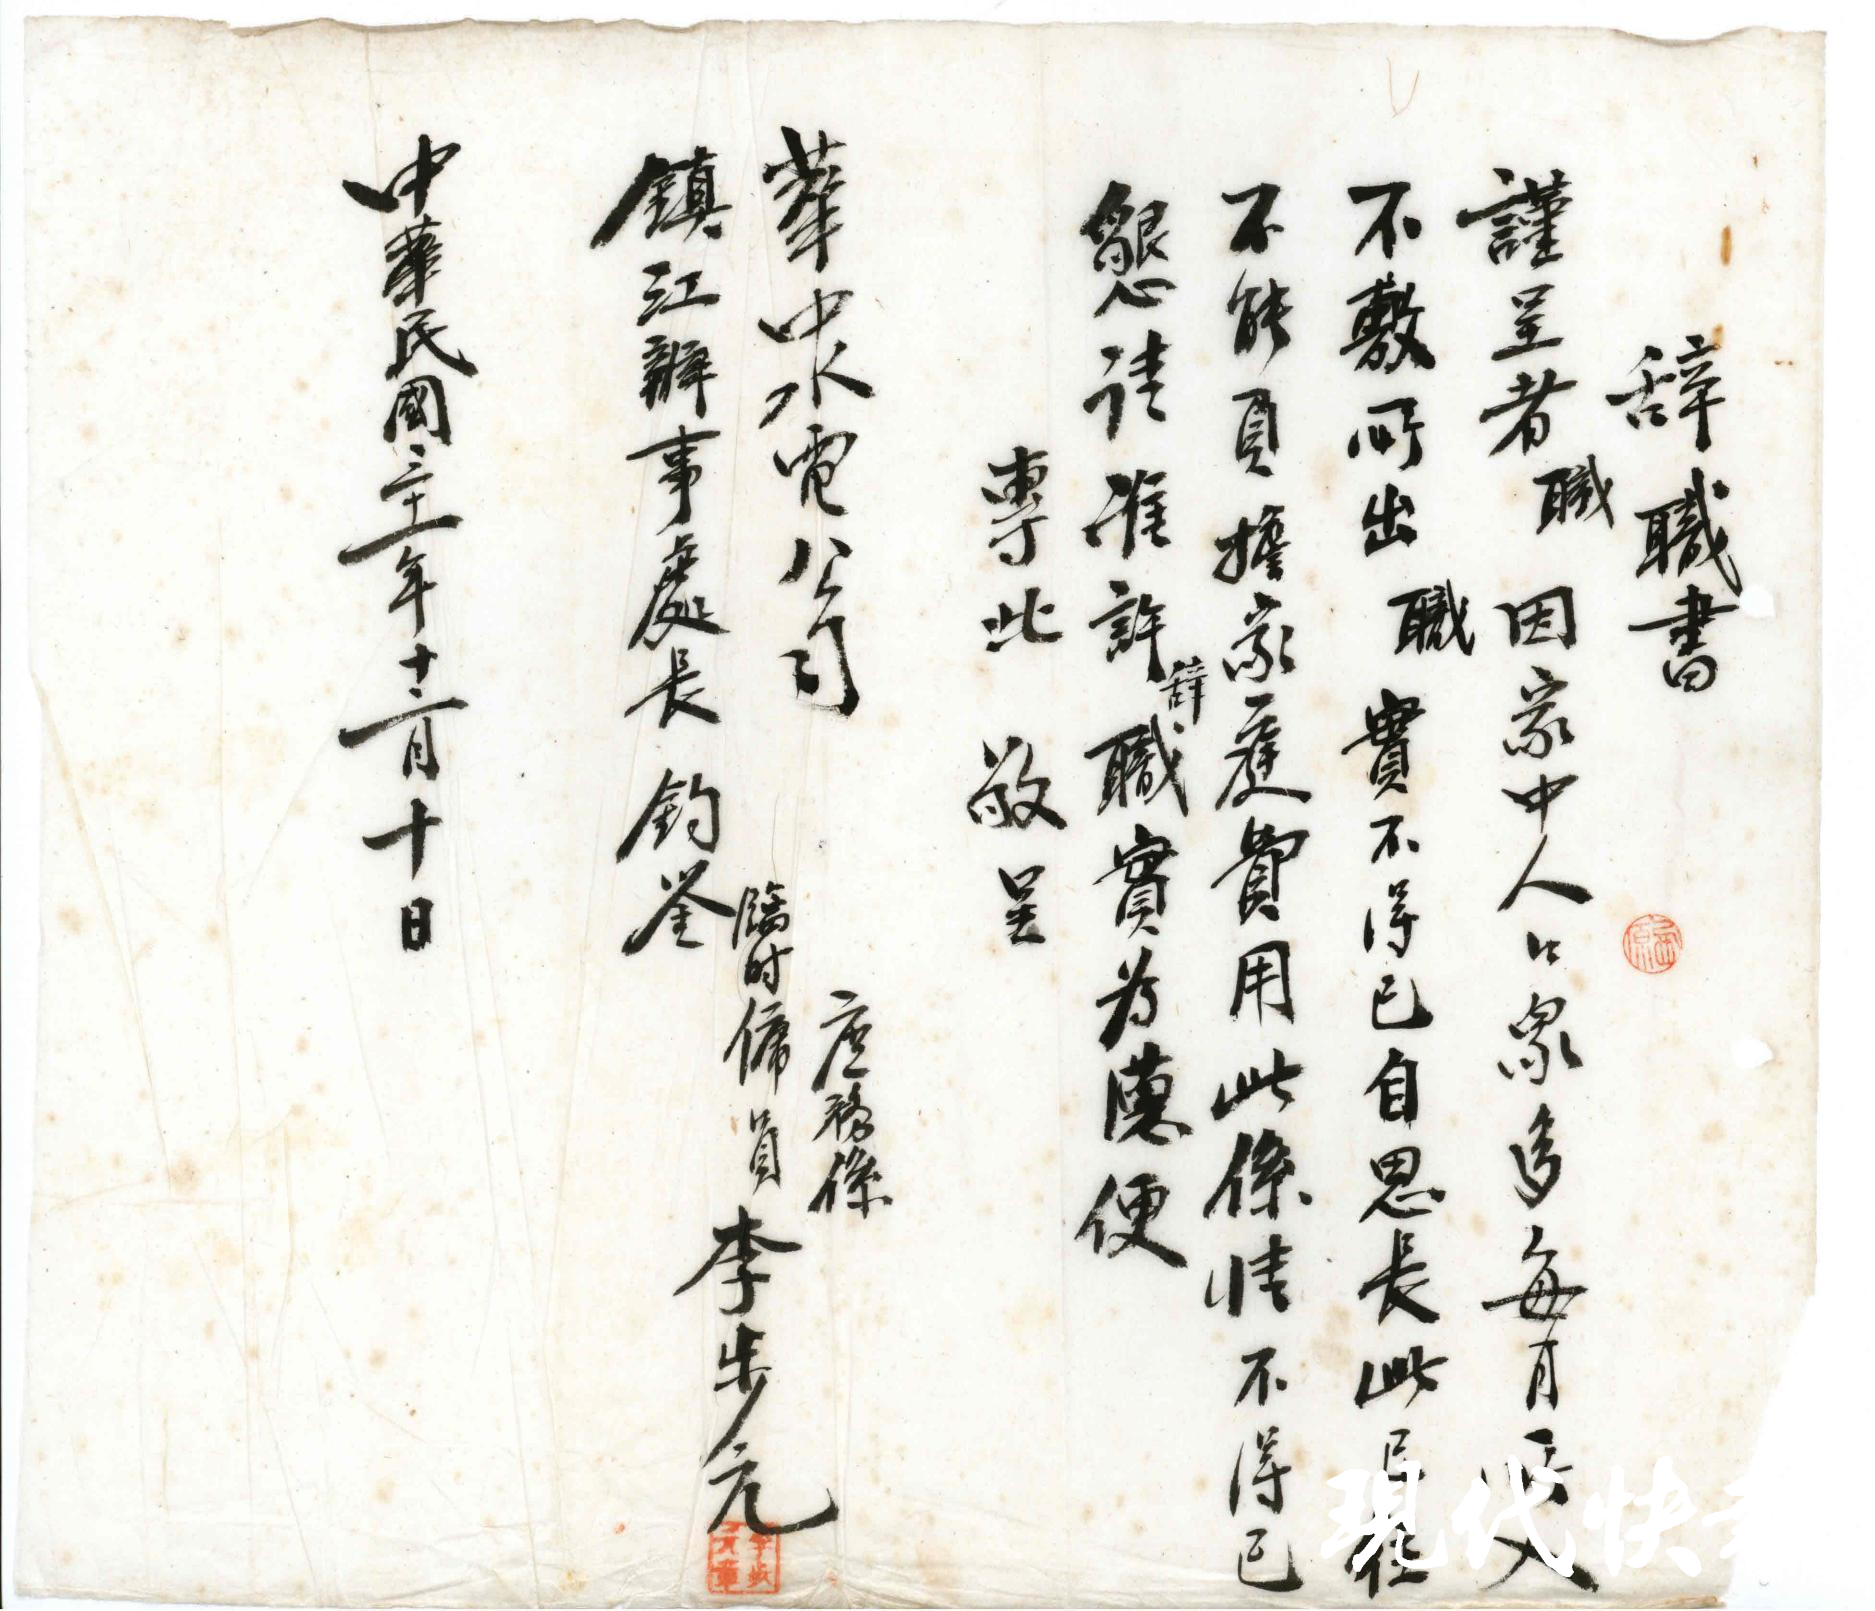 辭職書
謹呈者職因家中人口眾多每月所入
不敷所出職實不得已自思長此以往
不能負擔家庭費用此係情不得已
懇請准許辭職實為德便
專此敬呈
華中水電公司
鎮江辦事處長鈞鑒
庶務係
臨时傭員李步元
中華民國三十一年十二月十日
現代快